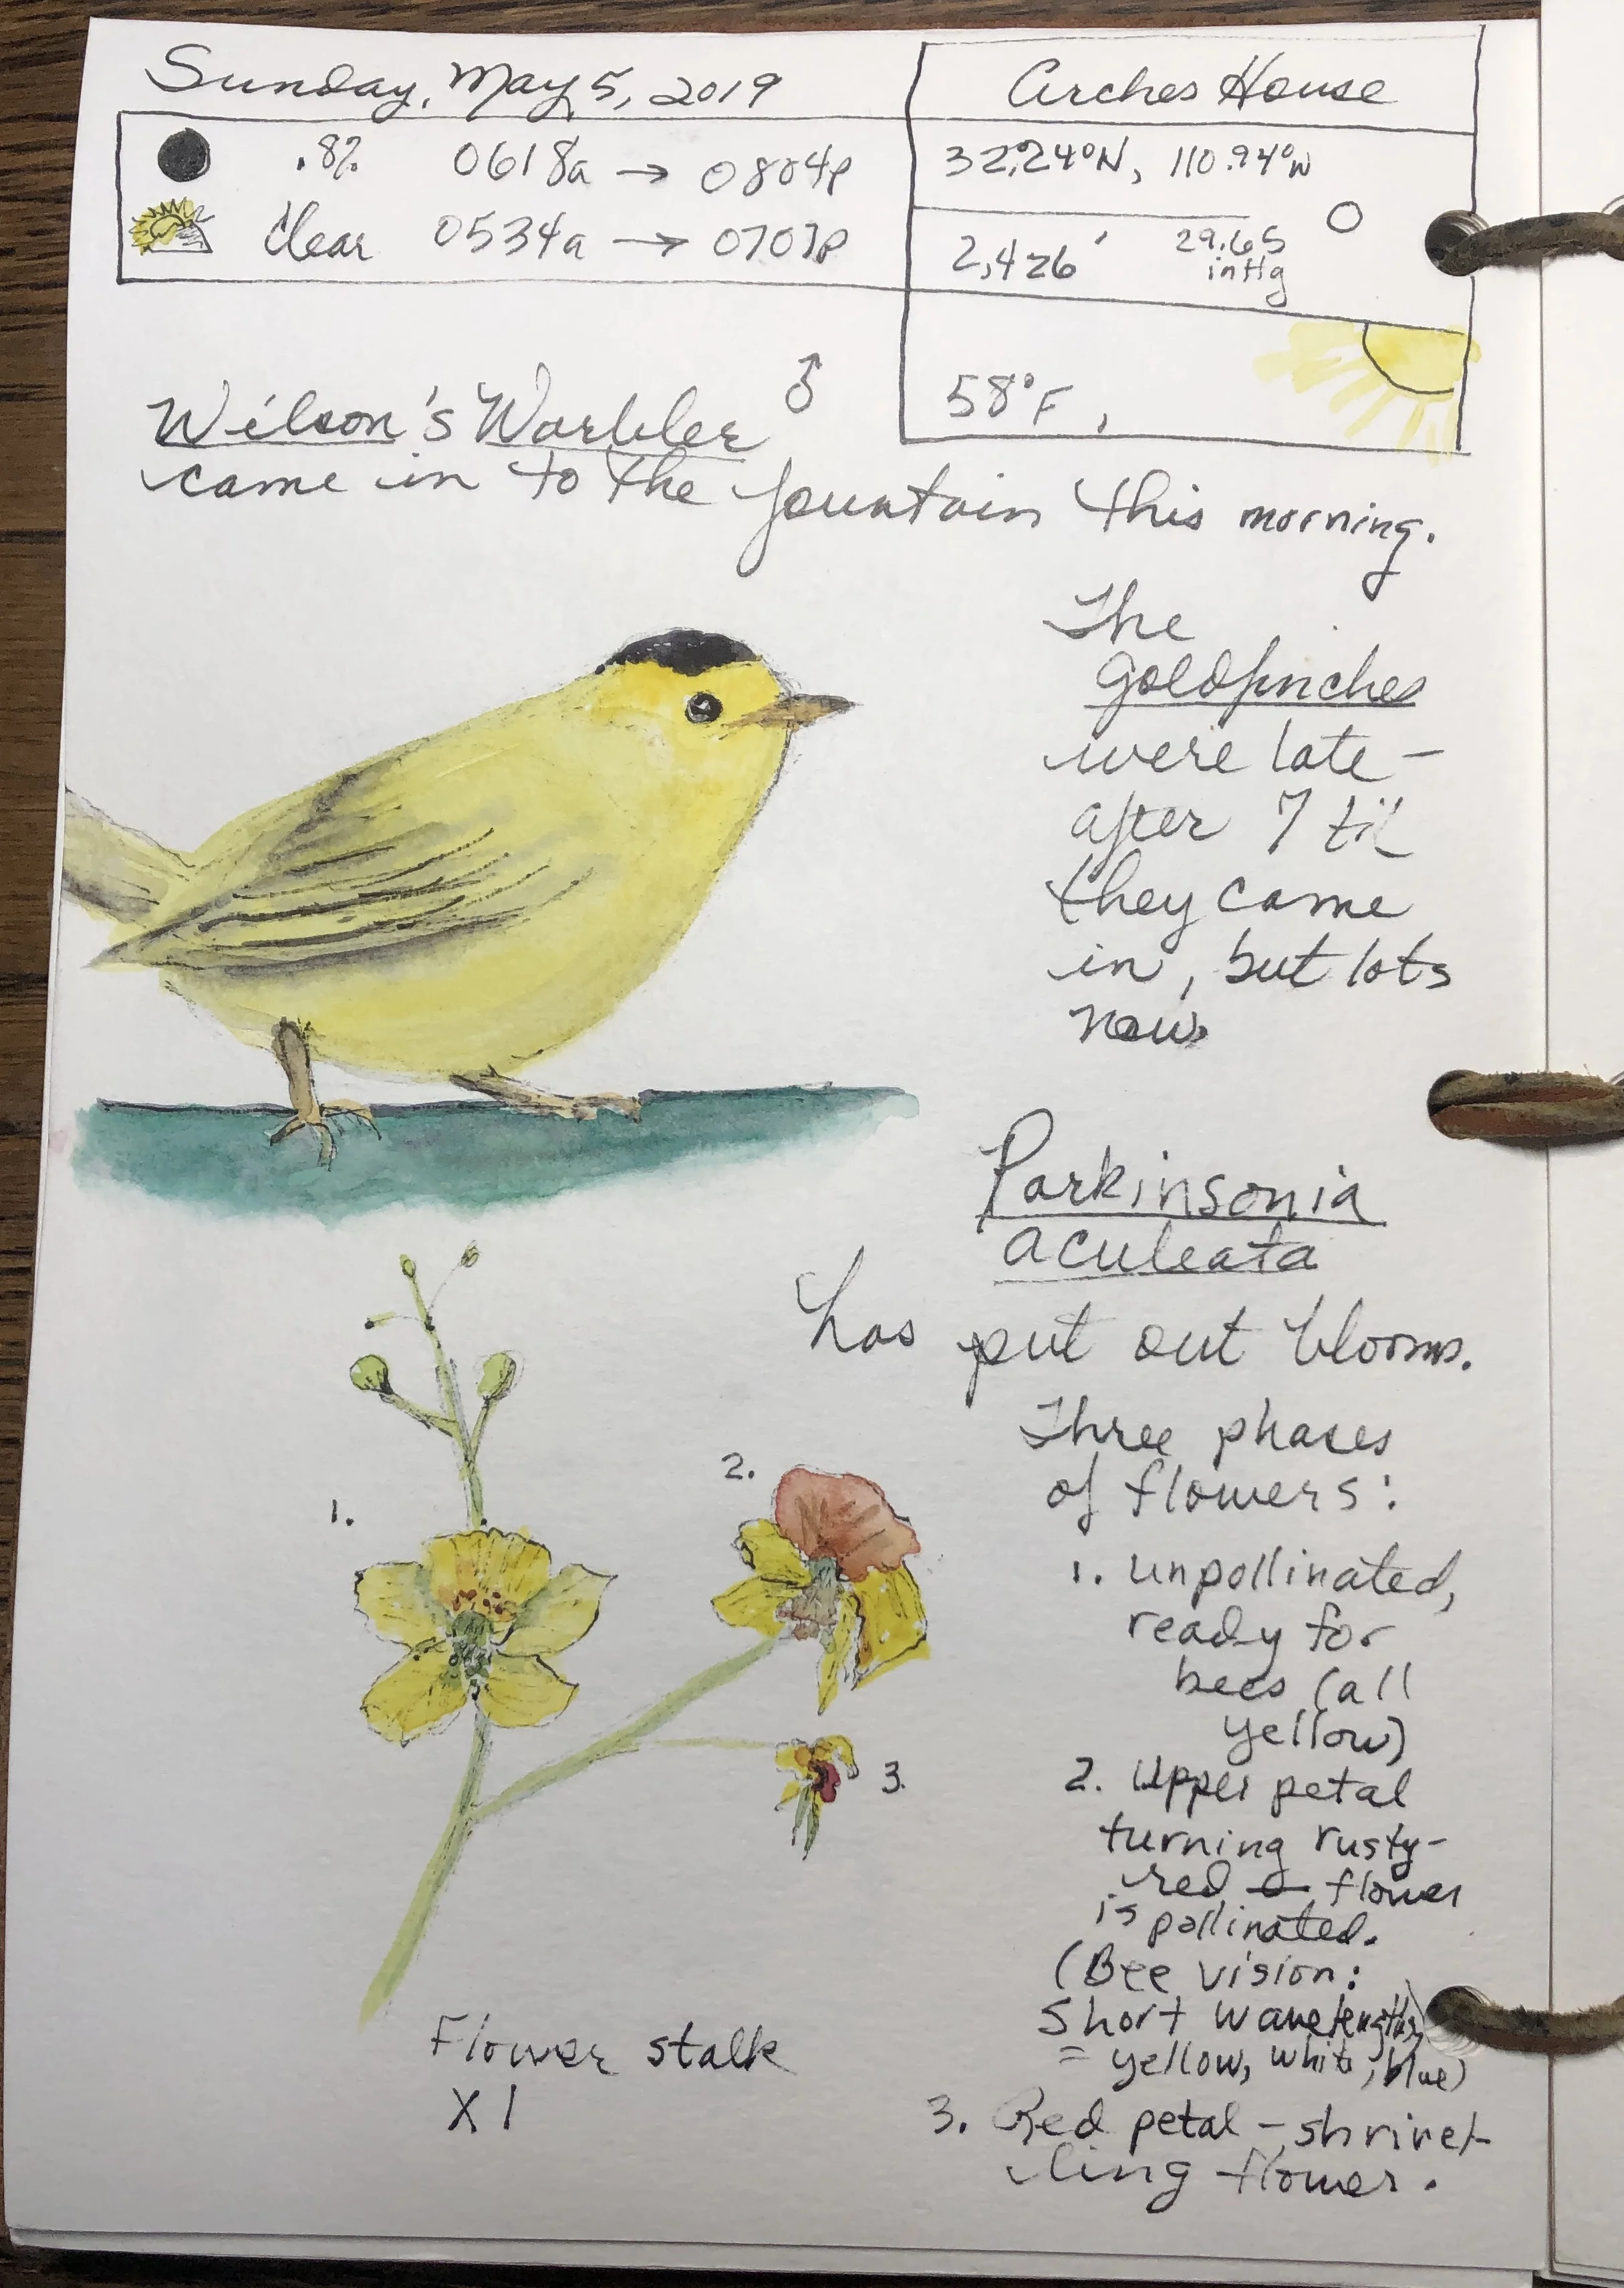 Sunday, May 5, 2019
Arches House
.8% 0618a → 0804p
Clear 0534a → 0707p
32.24°N, 110.94°W
2,426' 29.65
inHg
58°F,
Wilson's Warbler ♂
came in to the fountain this morning.
The
goldfinches
were late –
after 7 til
they came
in, but lots
now.
Parkinsonia
aculeata
has put out blooms.
Three phases
of flowers:
1. unpollinated,
ready for
bees (all
yellow)
2. Upper petal
turning rusty-
red flower
is pollinated.
(Bee vision:
short wavelengths
= yellow, white, blue)
3. Red petal – shrivel-
ling flower.
1.
2.
3.
Flower stalk
X1